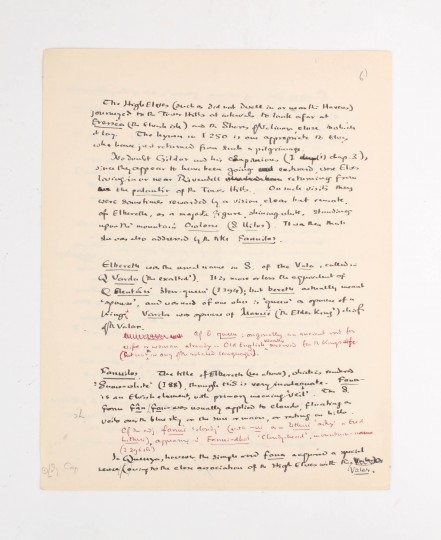 6)
The High Elves (such as did not dwell in or near the Havens)
journeyed to the Tower Hills at intervals to look afar at
Eressëa (the Elvish isle) and the Shores of Valinor, close
it lay. The hymn in I 250 is one appropriate to Elves
who have just returned from such a pilgrimage.
No doubt Gildor and his companions (I chap 3),
since they appear to have been going eastward, were Elves
living in or near Rivendell returning from
the palantír of the Tower Hills. On such visits they
were sometimes rewarded by a vision, clear but remote,
of Elbereth, as a majestic figure, shining white, standing
upon the mountain Oiolossë (S Uilos). It was then that
she was also addressed by the title Fanuilos.
Elbereth was the usual name in S. of the Vala, called in
Q Varda (the exalted). It is more or less the equivalent of
Q Elentári 'Star-queen' (I 394); but bereth actually meant
'spouse', and was used of one who is 'queen' as spouse of a
king. Varda was spouse of Manwë (the Elder King) chief
of the Valar.
Cf. E queen : originally an ancient word for
wife or woman already in Old English for the King's wife
(But not in any of the related languages).
Fanuilos. This title of Elbereth which is rendered
'Snow-white' (I 88), though this is very inadequate. Fana-
is an Elvish element, with primary meaning 'veil'. The S
form fân, fan- was usually applied to clouds, floating as
veils over the blue sky or the sun or moon, or resting on hills.
Cf the adj fanui 'cloudy' (with -ui as in lithui 'ashy' in Ered
Lithui), appearing in Fanuidhol 'Cloudyhead', a mountain-name
(I 296)
In Quenya, however, the simple word fana acquired a special
sense (owing to the close association of the High Elves with the
Valar.